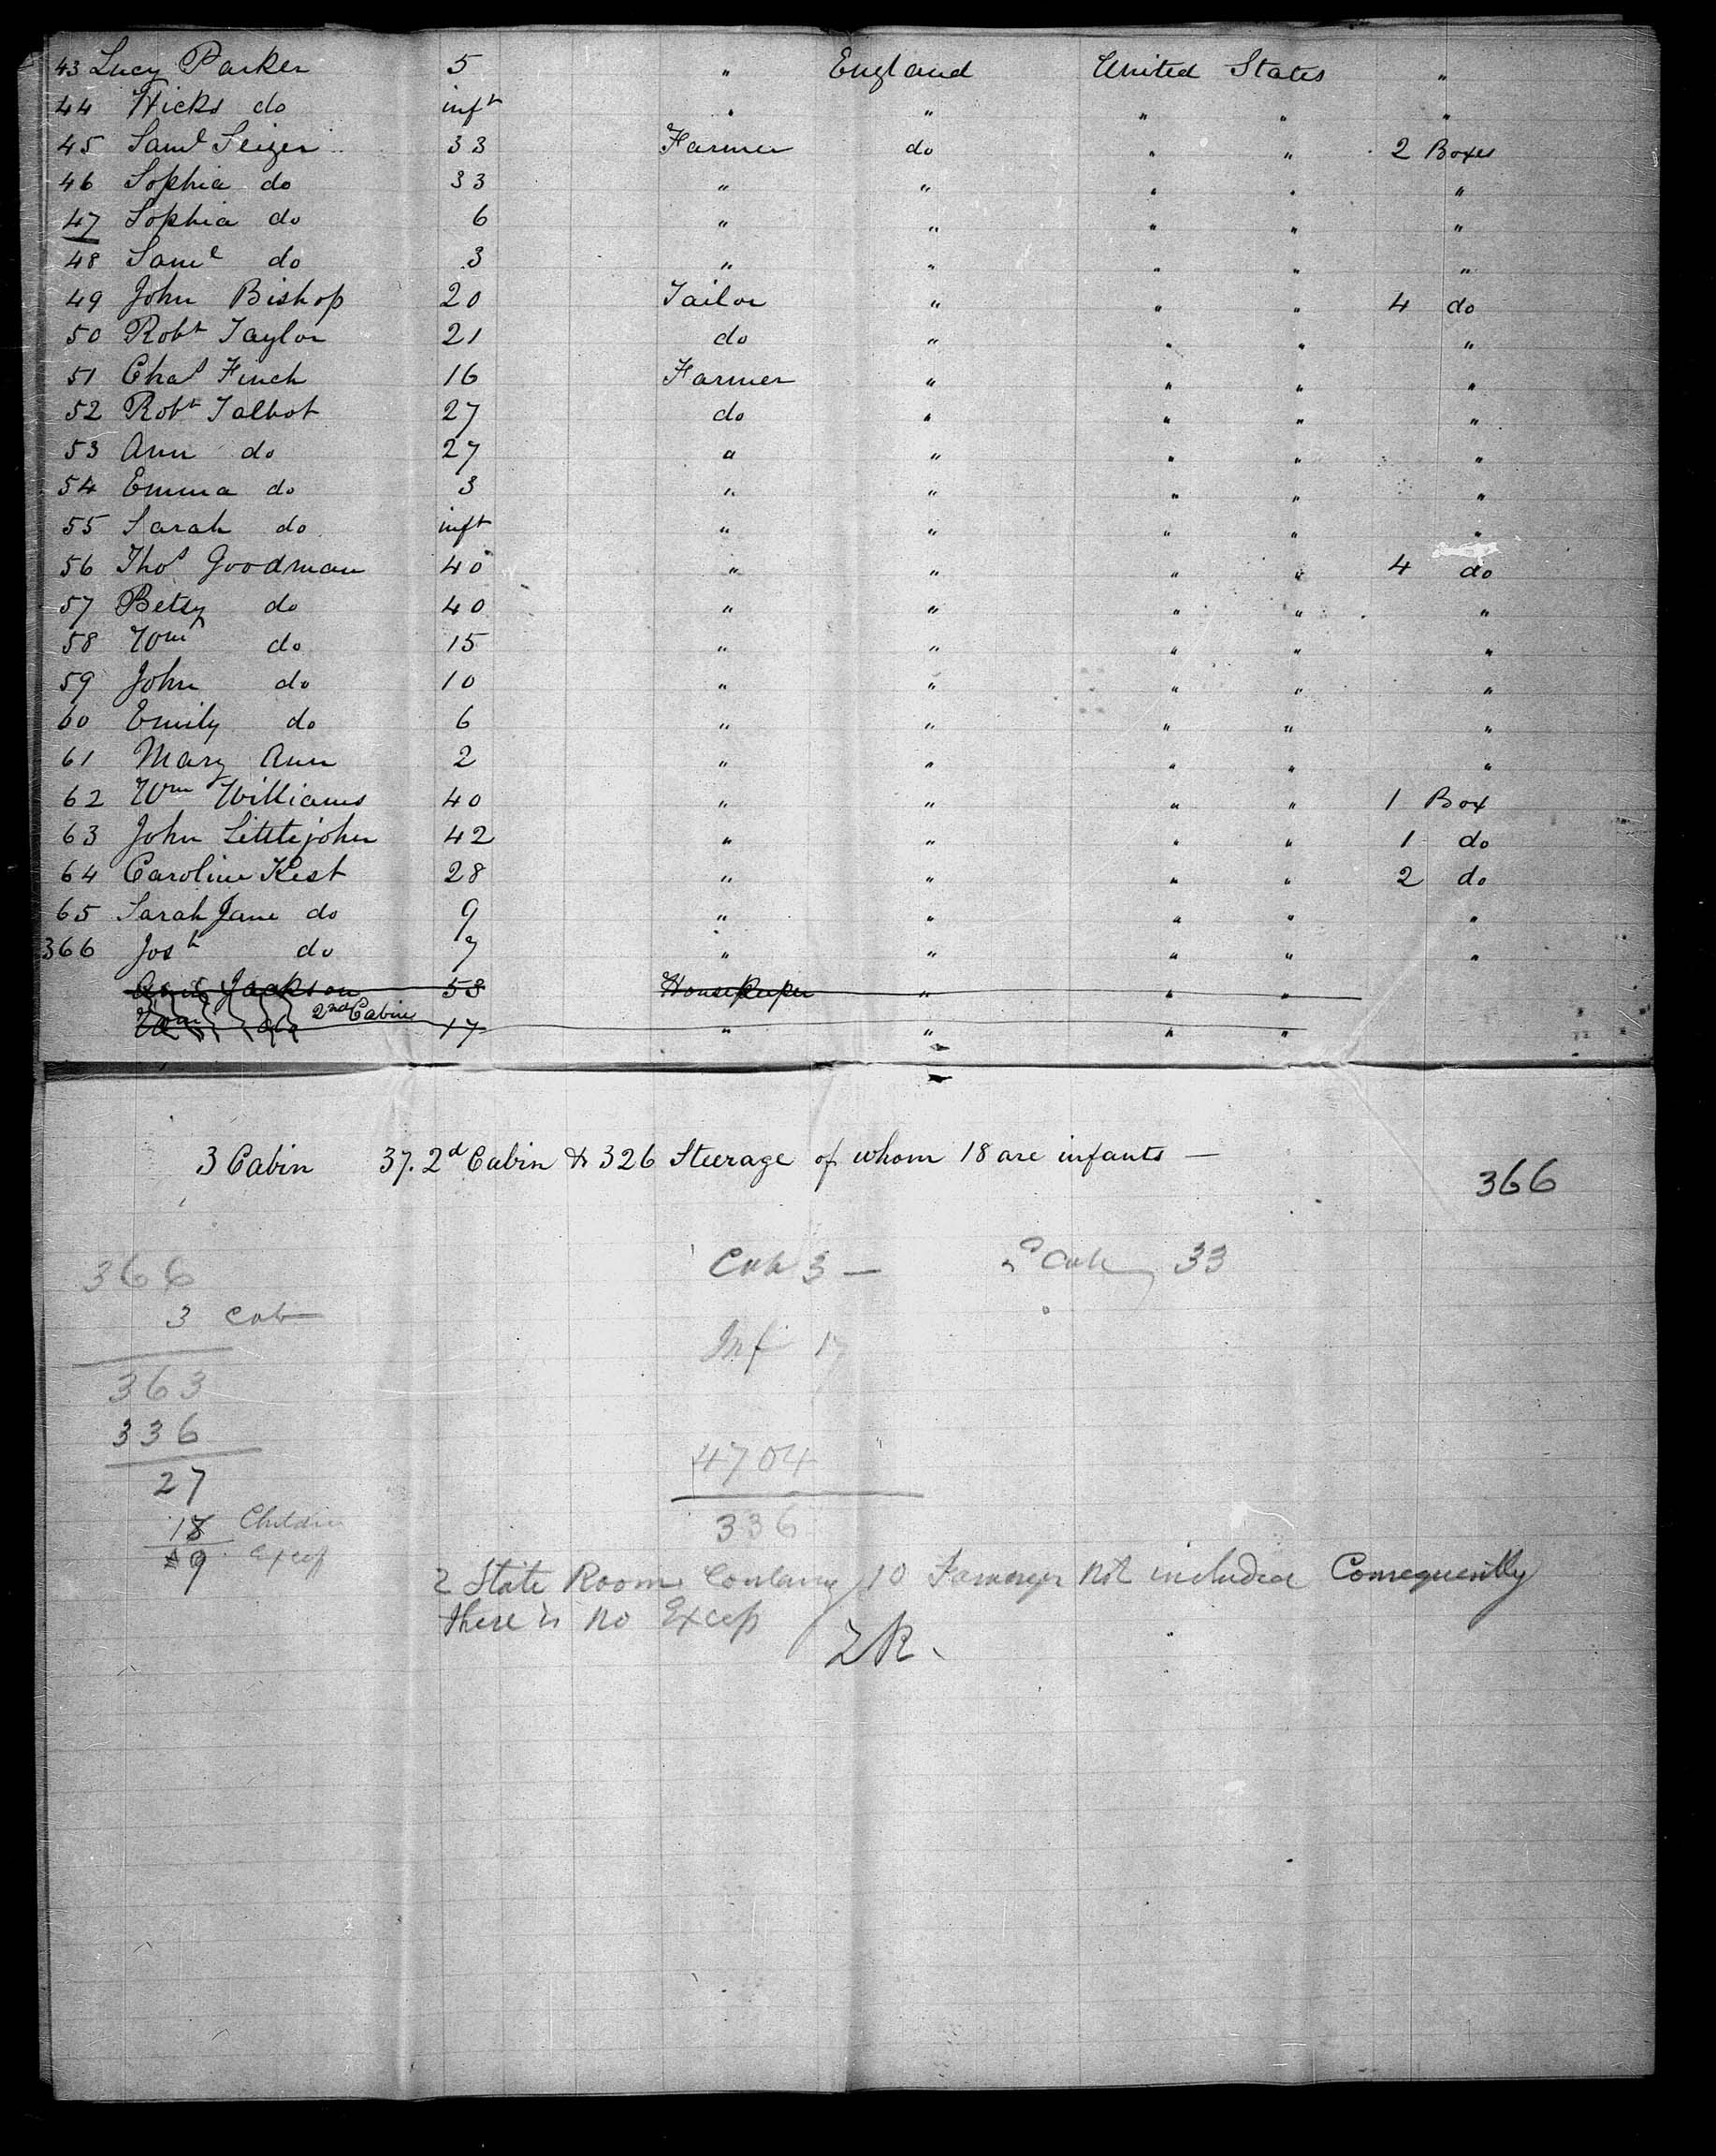 43 Lucy Parker 5 " England United States "
44 Hicks do inft " " " " "
45 Saml Seizer 33 Farmer do " " 2 Boxes
46 Sophia do 33 " " " " "
47 Sophia do 6 " " " " "
48 Saml do 3 " " " " "
49 John Bishop 20 Tailor " " " 4 do
50 Robt Taylor 21 do " " " "
51 Chas Finch 16 Farmer " " " "
52 Robt Talbot 27 do " " " "
53 Ann do 27 " " " " "
54 Emma do 3 " " " " "
55 Sarah do inft " " " " "
56 Thos Goodman 40 " " " " 4 do
57 Betsy do 40 " " " " "
58 Wm do 15 " " " " "
59 John do 10 " " " " "
60 Emily do 6 " " " " "
61 Mary Ann 2 " " " " "
62 Wm Williams 40 " " " " 1 Box
63 John Littlejohn 42 " " " " 1 do
64 Caroline Kest 28 " " " " 2 do
65 Sarah Jane do 9 " " " " "
366 Josh do 7 " " " " "
Jackson 58 Housekeeper " " "
Wm do 2nd Cabin 17 " " " "
3 Cabin 37. 2d Cabin & 326 Steerage of whom 18 are infants —
366
366 Cab 3 — 2 Cab 33
3 Cab
Inf 17
363
336
4704
27
336
18 Children
9 Excess
2 State Rooms Containing 10 Passengers Not included Consequently
there is no Excess